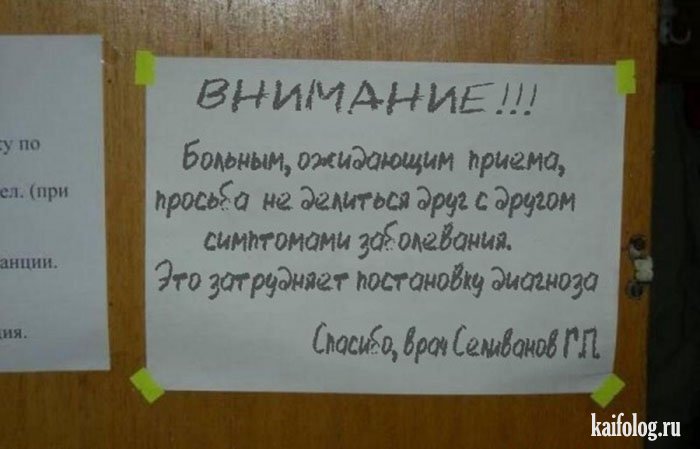 ВНИМАНИЕ!!!
Больным, ожидающим приема,
просьба не делиться друг с другом
симптомами заболевания.
Это затрудняет постановку диагноза
Спасибо, врач Селиванов Г.П.
су по
ел. (при
анции.
ия.
kaifolog.ru